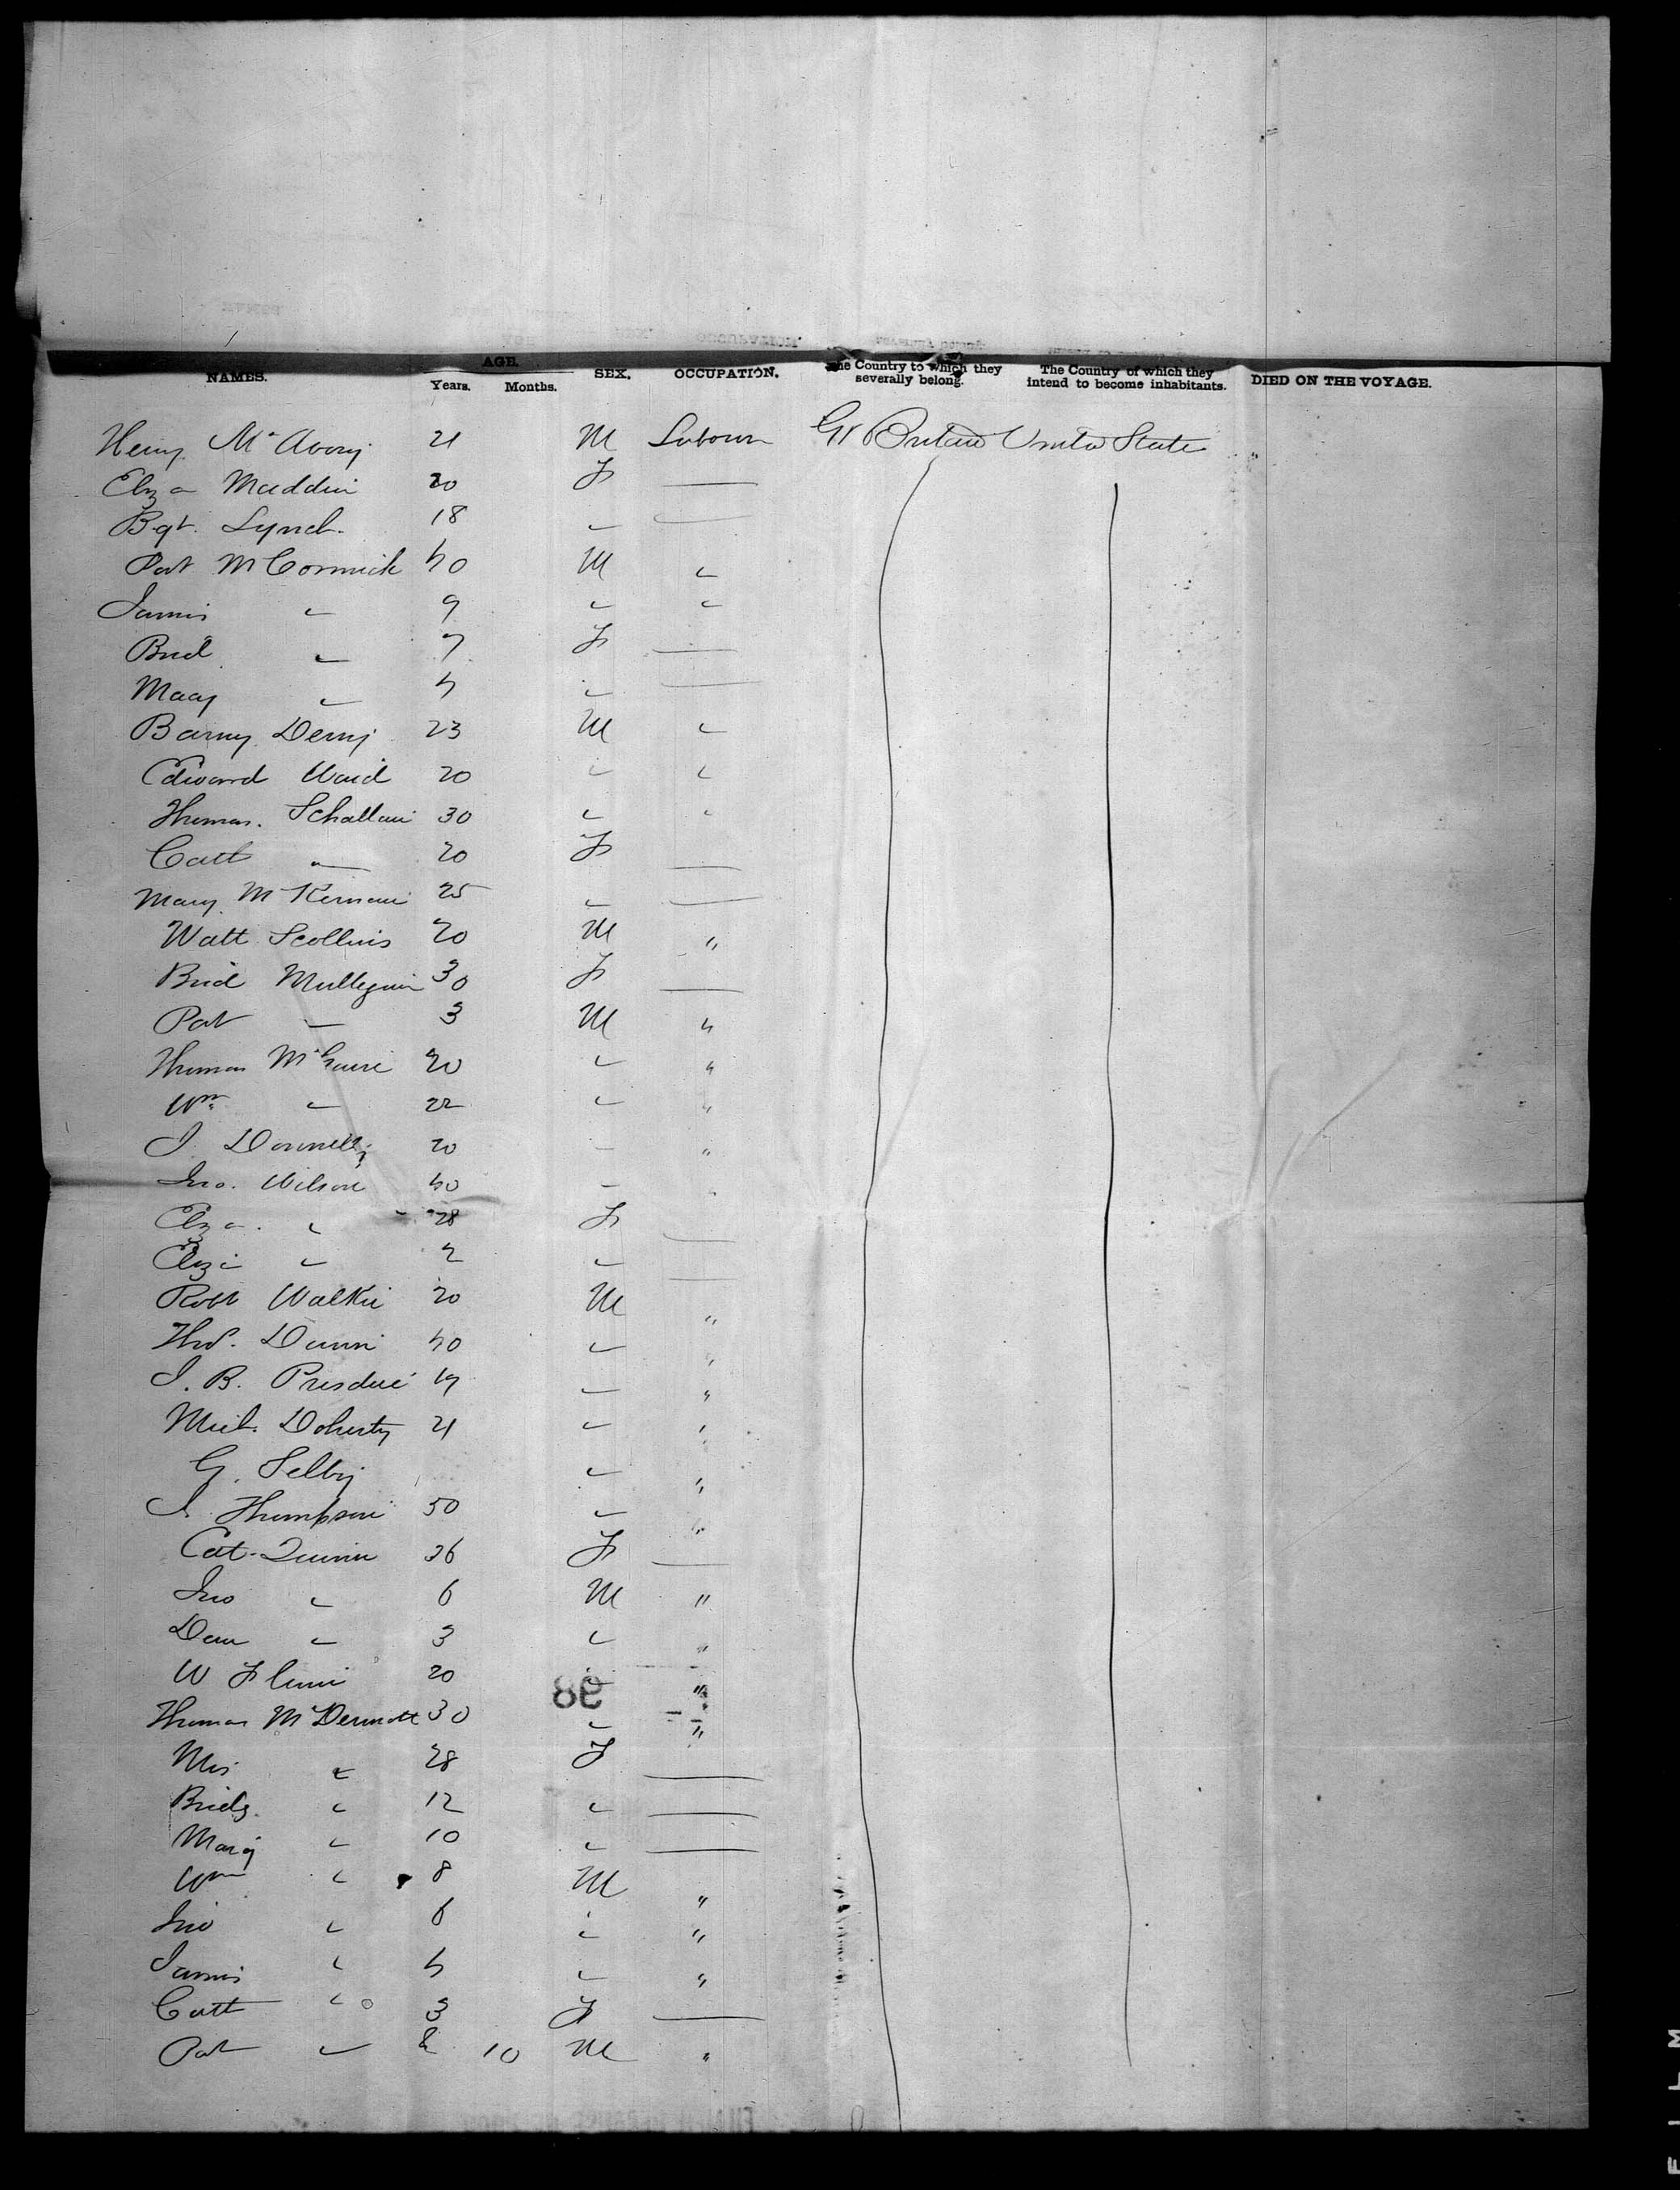 NAMES. AGE. Years. Months. SEX. OCCUPATION. The Country to which they severally belong. The Country of which they intend to become inhabitants. DIED ON THE VOYAGE.
Henry McAvoy 21 M Labourer Gt Britain United State
Eliza Madden 20 F —
Bgt. Lynch. 18 " —
Pat McCormick 40 M "
James " 9 " "
Brid " 7 F —
Mary " 4 " —
Barny Derry 23 M "
Edward Ward 20 " "
Thomas. 30 " "
Cath " 20 F —
Mary McKernan 25 " —
Watt Scollins 20 M "
Brid Mullegan 30 F —
Pat " 3 M "
Thomas McGuire 20 " "
Wm " 22 " "
J. Donnelly 20 " "
Jno. Wilson 40 " "
Eliza. " 28 F —
Eliza " 2 " —
Robt Walker 20 M "
Thos. Dunn 40 " "
J. B. 19 " "
Mich. Doherty 21 " "
G. Selby " "
J. Thompson 50 " "
Cat. Quinn 36 F —
Jno " 6 M "
Dan " 3 " "
W 20 " "
98
Thomas McDermott 30 " "
Mrs " 28 F —
Bridg. " 12 " —
Mary " 10 " —
Wm " 8 M "
Jno " 6 " "
James " 4 " "
Catt " 3 F —
Pat " & 10 M "
FILM